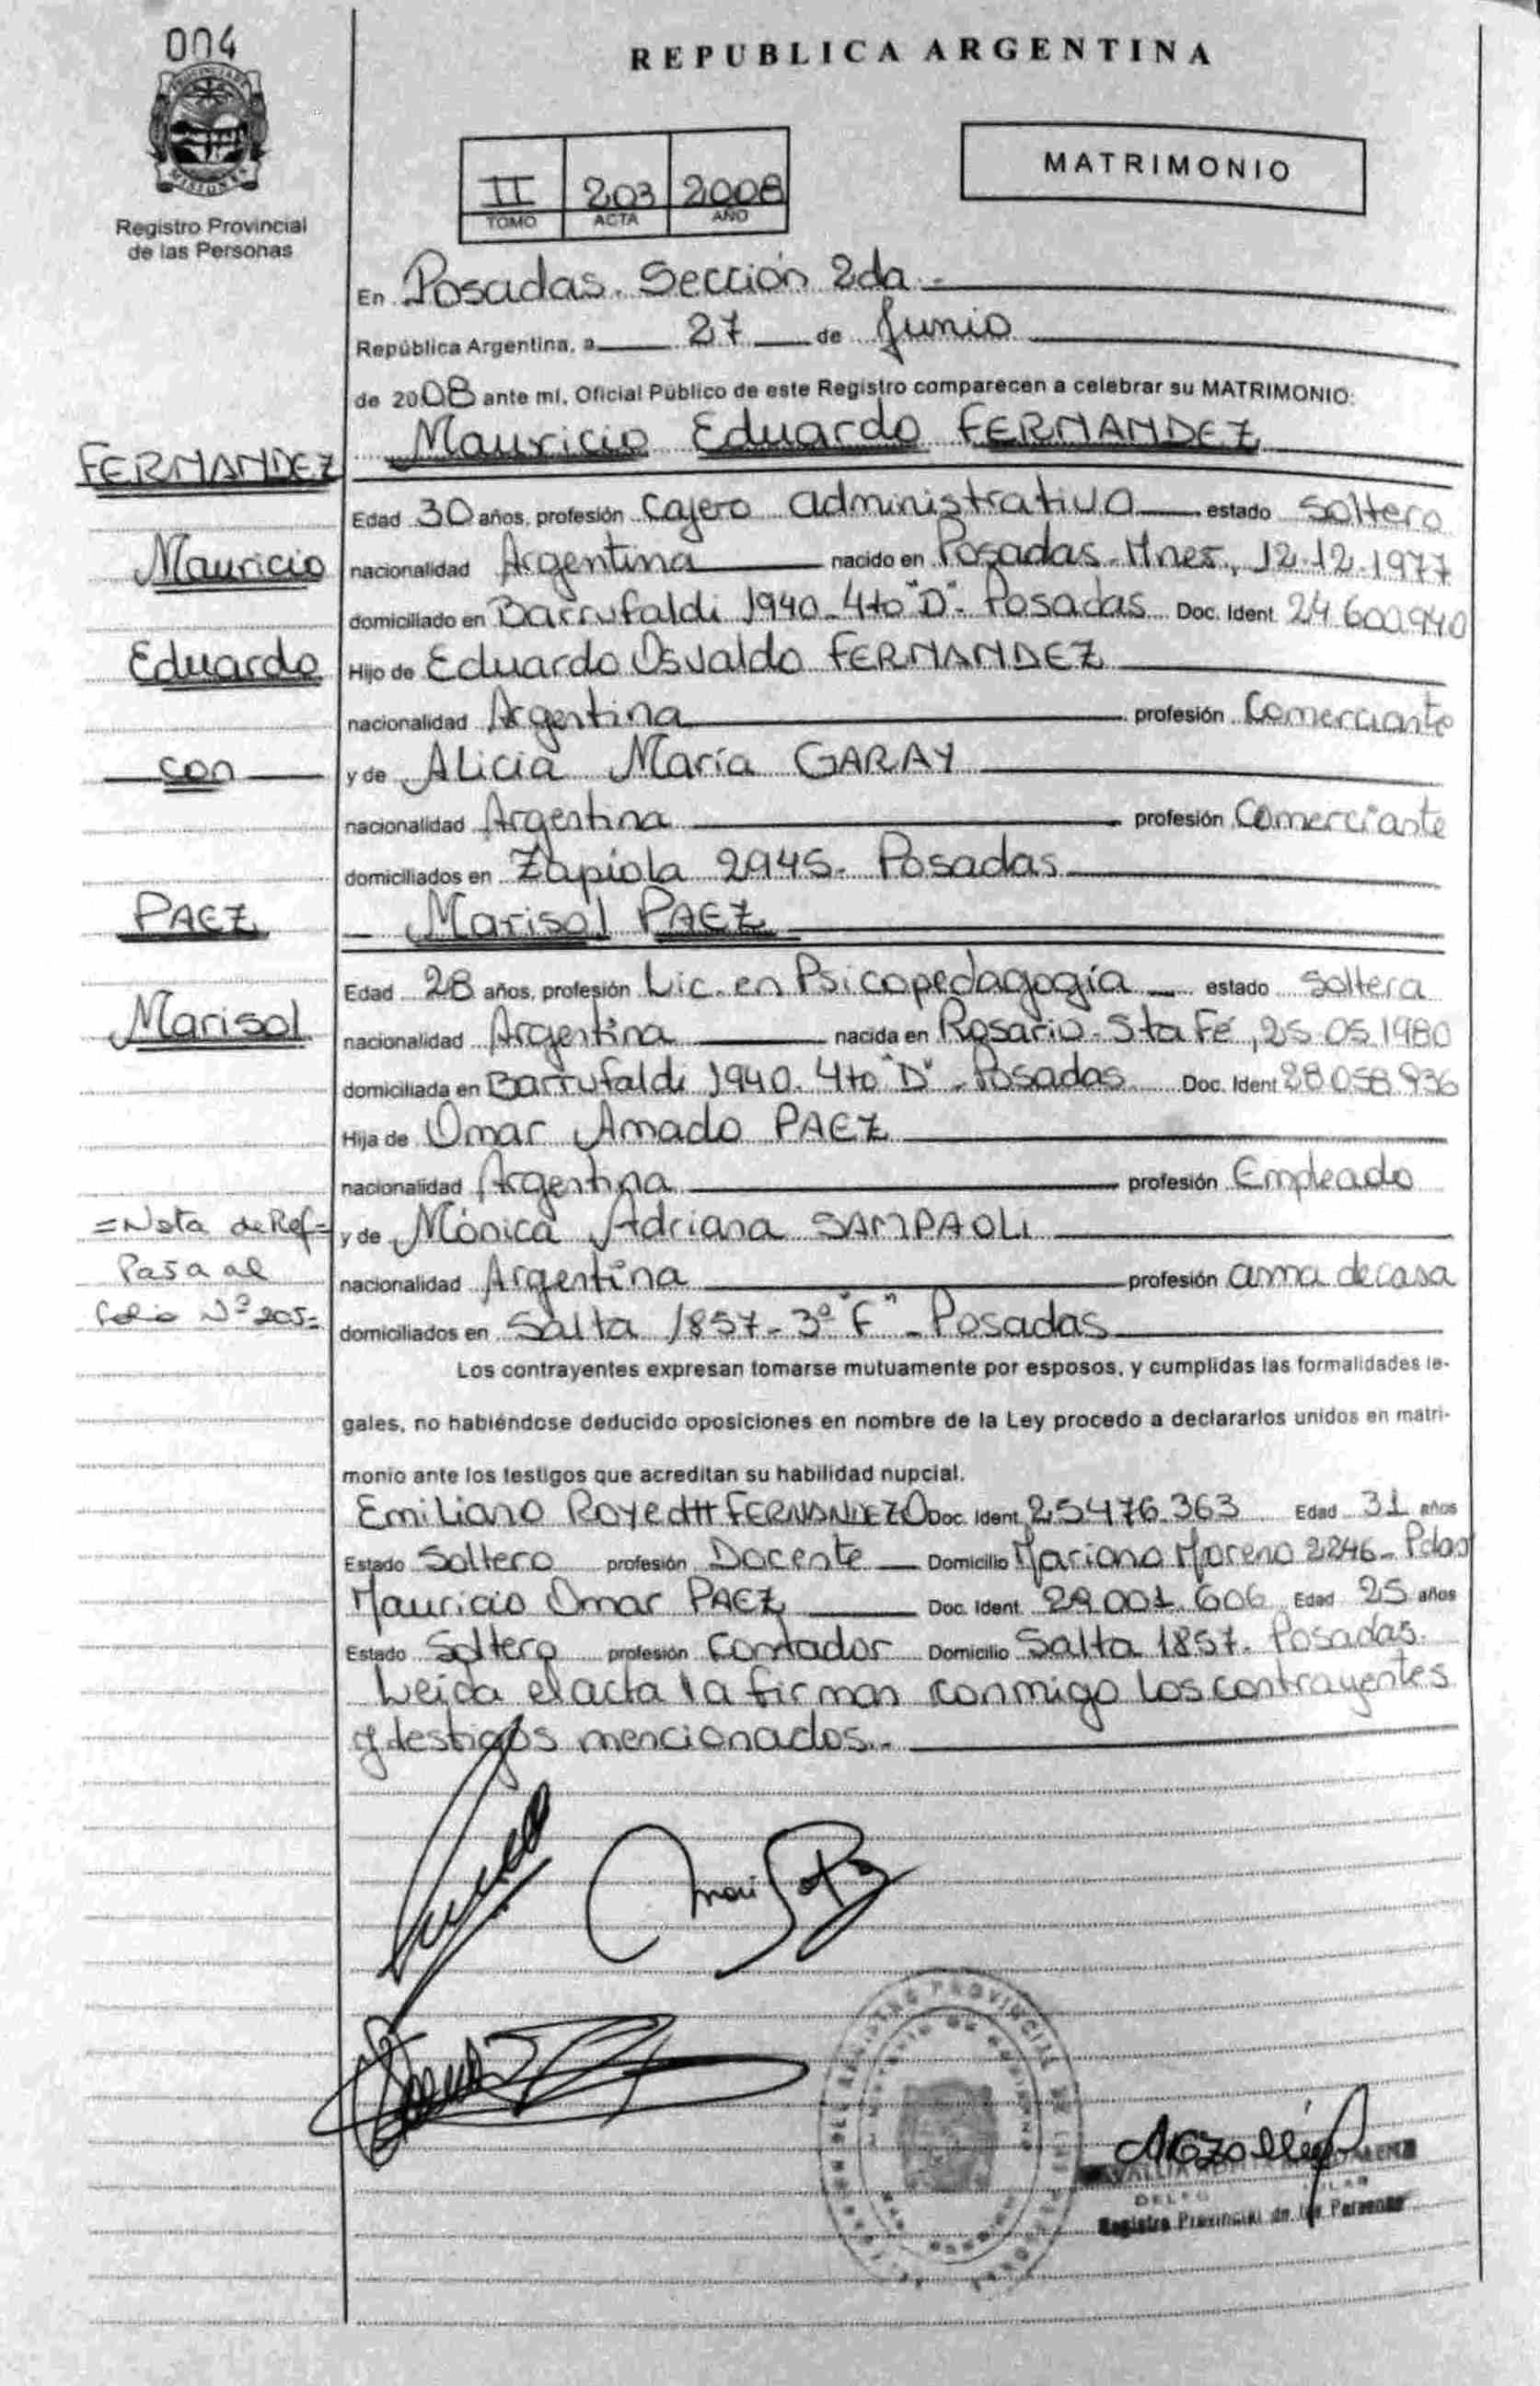 004
Registro Provincial
de las Personas
REPUBLICA ARGENTINA
II 203 2008
TOMO ACTA AÑO
MATRIMONIO
En Posadas. Sección 2da.-
República Argentina, a 27 de Junio
de 2008 ante mí, Oficial Público de este Registro comparecen a celebrar su MATRIMONIO:
Mauricio Eduardo FERNANDEZ
FERNANDEZ
Edad 30 años, profesión Cajero administrativo estado Soltero
Mauricio
nacionalidad Argentina nacido en Posadas-Mnes, 12.12.1977
domiciliado en Barrufaldi 1940-4to"D"- Posadas Doc. Ident. 24.600.940
Eduardo
Hijo de Eduardo Osvaldo FERNANDEZ
nacionalidad Argentina profesión Comerciante
con
y de Alicia María GARAY
nacionalidad Argentina profesión Comerciante
domiciliados en Zapiola 2945- Posadas
PAEZ
Marisol PAEZ
Edad 28 años, profesión Lic. en Psicopedagogía estado Soltera
Marisol
nacionalidad Argentina nacida en Rosario-Sta Fé, 25.05.1980
domiciliada en Barrufaldi 1940-4to"D"-Posadas Doc. Ident. 28.058.936
Hija de Omar Amado PAEZ
nacionalidad Argentina profesión Empleado
=Nota de Ref=
y de Mónica Adriana SAMPAOLI
Pasa al
nacionalidad Argentina profesión ama de casa
folio Nº 205=
domiciliados en Salta 1857-3º"F"-Posadas
Los contrayentes expresan tomarse mutuamente por esposos, y cumplidas las formalidades le-
gales, no habiéndose deducido oposiciones en nombre de la Ley procedo a declararlos unidos en matri-
monio ante los testigos que acreditan su habilidad nupcial.
Emiliano FERNANDEZ Doc. Ident. 25.476.363 Edad 31 años
Estado Soltero profesión Docente Domicilio Mariano Moreno 2246-Pdas
Mauricio Omar PAEZ Doc. Ident. 29.001.606 Edad 25 años
Estado Soltero profesión Contador Domicilio Salta 1857. Posadas.
Leída el acta la firman conmigo los contrayentes
y testigos mencionados.-
REGISTRO PROVINCIAL DE LAS PERSONAS
Registro Provincial de las Personas